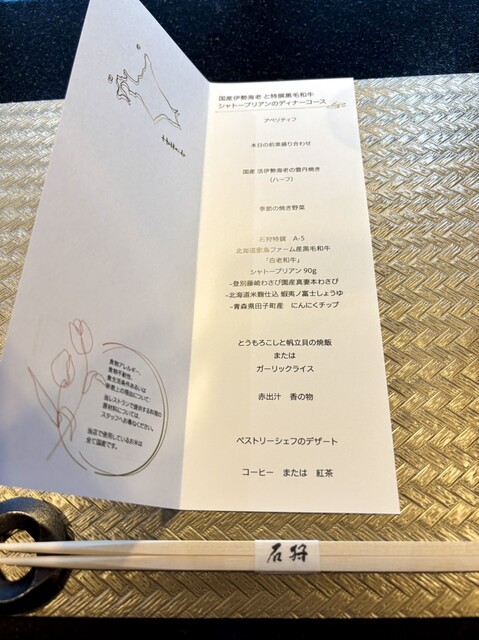 Hokkaido
食物アレルギー、
食物不耐性、
食生活条件あるいは
宗教上の理由について:
当レストランで提供するお料理の
原材料については、
スタッフへお尋ねください。
当店で使用しているお米は
全て国産です。
国産伊勢海老 と特撰黒毛和牛
シャトーブリアンのディナーコース
アペリティフ
本日の前菜盛り合わせ
国産 活伊勢海老の雲丹焼き
（ハーフ）
季節の焼き野菜
石狩特撰 A-5
北海道敷島ファーム産黒毛和牛
「白老和牛」
シャトーブリアン 90g
–登別藤崎わさび国産真妻本わさび
–北海道米麹仕込 蝦夷ノ富士しょうゆ
–青森県田子町産 にんにくチップ
とうもろこしと帆立貝の焼飯
または
ガーリックライス
赤出汁 香の物
ペストリーシェフのデザート
コーヒー または 紅茶
石狩